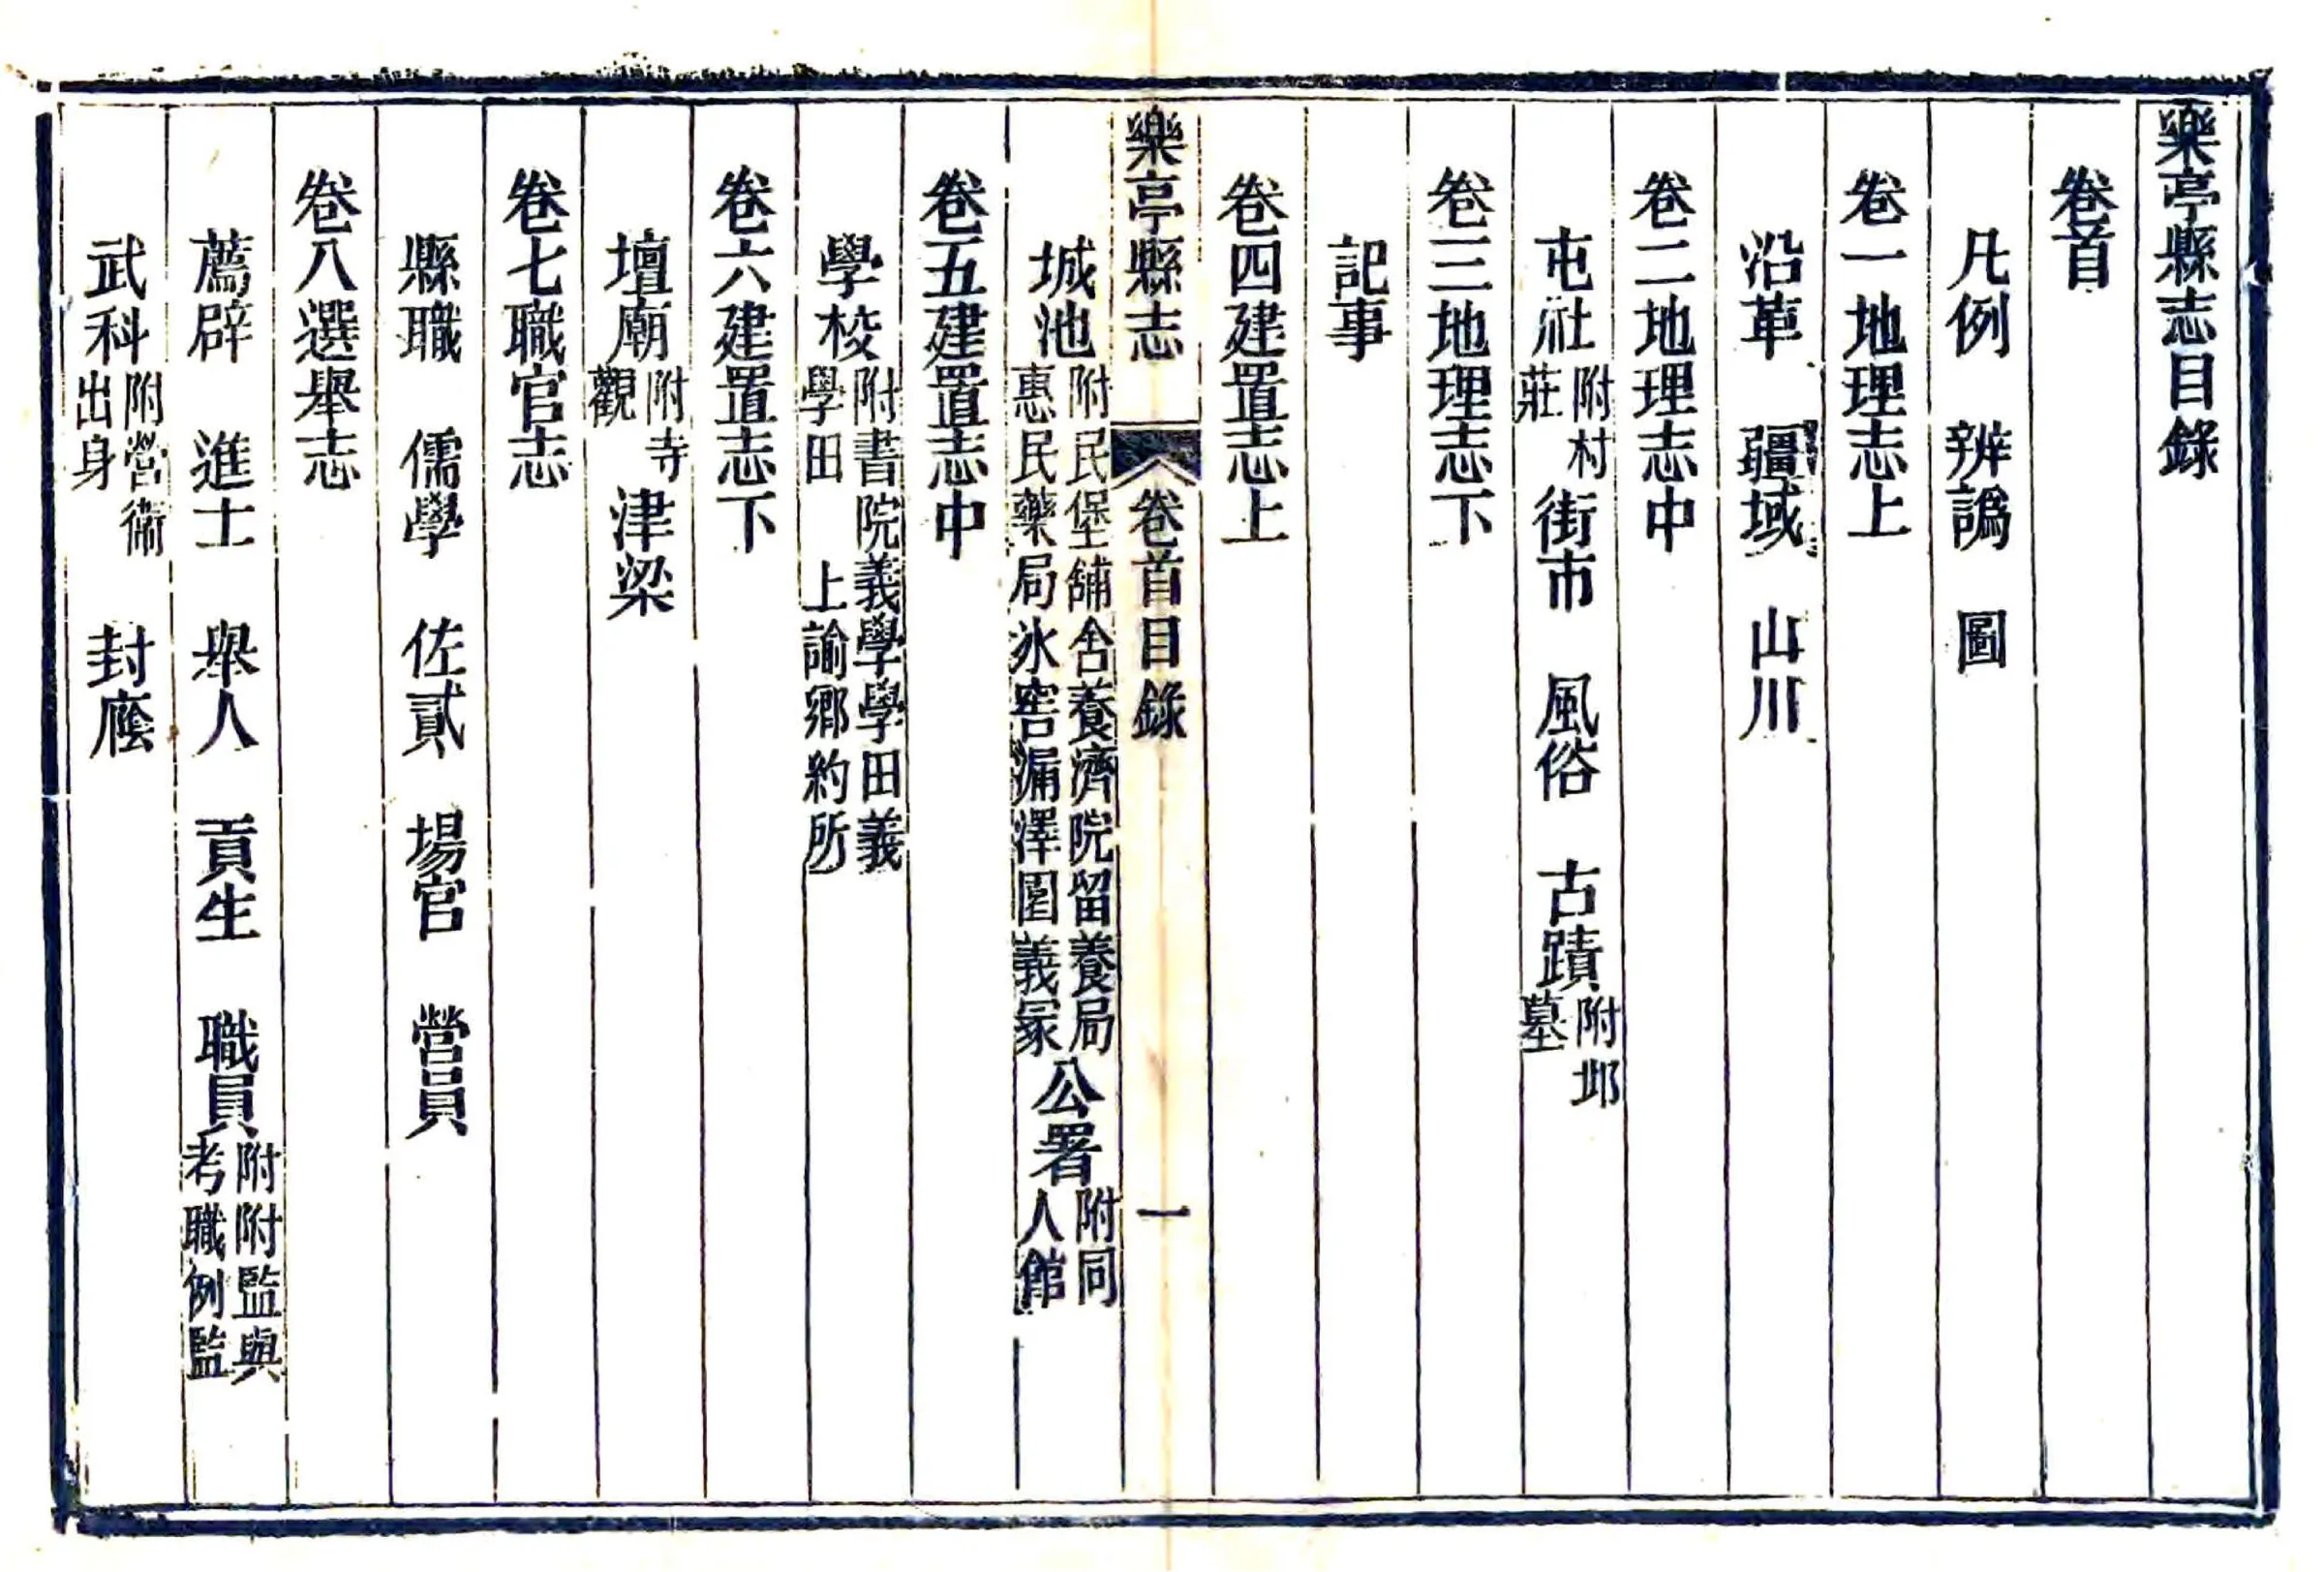 樂亭縣志目錄
卷首
凡例　辨譌　圖
卷一地理志上
沿革　疆域　山川
卷二地理志中
屯社附村莊街市　風俗　古蹟附邱墓
卷三地理志下
記事
卷四建置志上
樂亭縣志　卷首目錄　一
城池附民堡舖舍養濟院留養局惠民藥局氷窖漏澤園義冢公署附同人館
卷五建置志中
學校附書院義學學田義學田　上諭鄉約所
卷六建置志下
壇廟附寺觀津梁
卷七職官志
縣職　儒學　佐貳　場官　營員
卷八選舉志
薦辟　進士　舉人　貢生　職員附附監與考職例監
武科附營衞出身　封廕